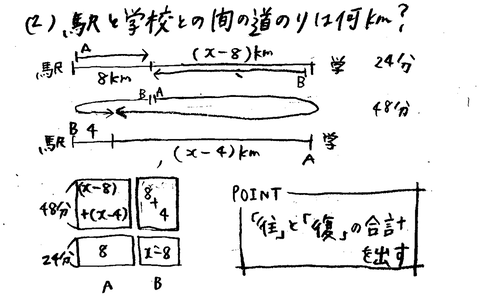 (2) 駅と学校との間の道のりは何km?
A (x-8)km
駅 8km B 学 24分
B A 48分
B 4
駅 学
(x-4)km A
48分 (x-8)+(x-4) 8+4
24分 8 x-8
A B
POINT
「往」と「復」の合計
を出す